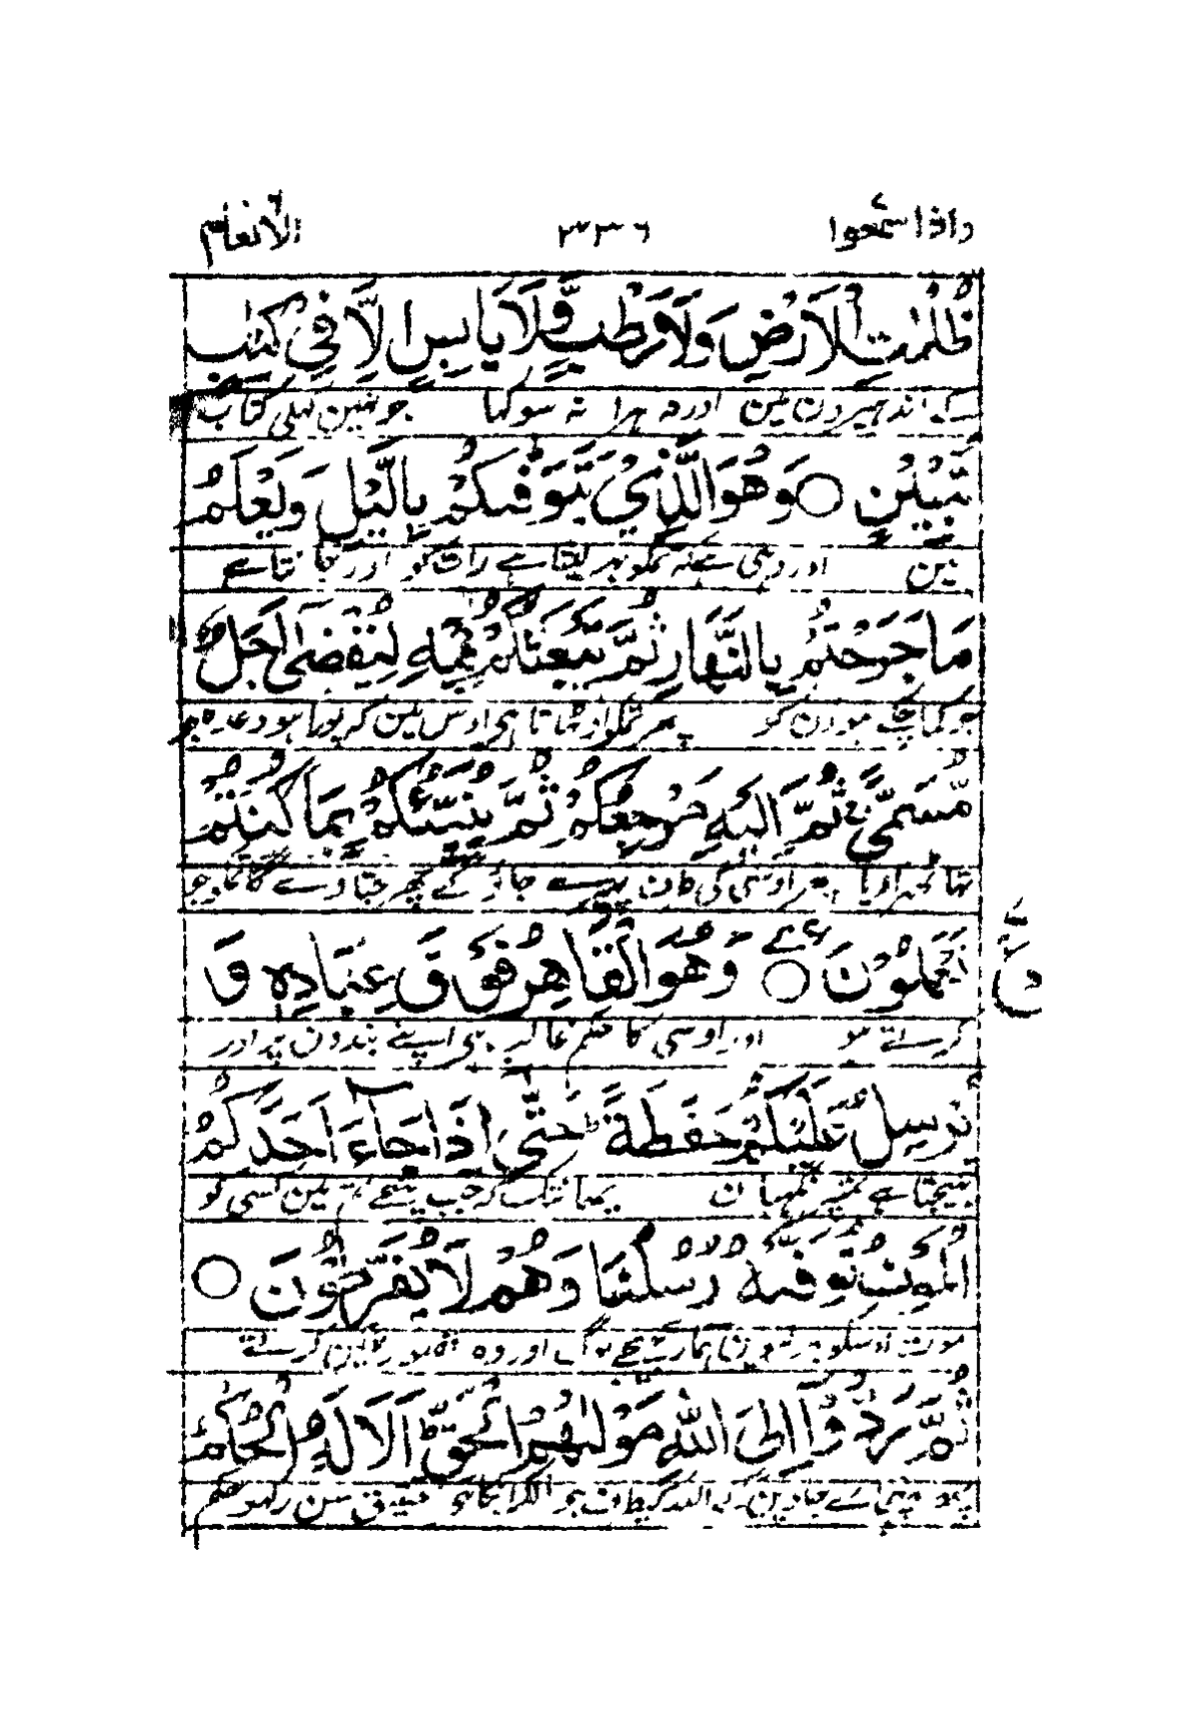 واذا سمعوا ۳۳۶ الانعام ٦
ظُلُمٰتِ الْاَرْضِ وَلَا رَطْبٍ وَّلَا يَابِسٍ اِلَّا فِيْ كِتٰبٍ
کے اندھیرون مین اور نہ ہرا نہ سوکہا جو نہین کہلی کتاب
مُّبِيْنٍ ○ وَهُوَ الَّذِيْ يَتَوَفّٰىكُمْ بِالَّيْلِ وَيَعْلَمُ
مین اور وہی ہے کہ تمکو بہر لیتا ہے رات کو اور جانتا ہے
مَا جَرَحْتُمْ بِالنَّهَارِ ثُمَّ يَبْعَثُكُمْ فِيْهِ لِيُقْضٰٓى اَجَلٌ
جو کما چکے ہو دن کو پھر تمکو اوٹہاتا ہی اوس مین کہ پورا ہو وعدہ جو
مُّسَمًّى ۚ ثُمَّ اِلَيْهِ مَرْجِعُكُمْ ثُمَّ يُنَبِّئُكُمْ بِمَا كُنْتُمْ
تہا ٹہرا دیا پھر اوسی کی طرف پہرے جاؤ گے پھر جتا دے گا تمکو جو
تَعْمَلُوْنَ ○ وَهُوَ الْقَاهِرُ فَوْقَ عِبَادِهٖ وَ
کرتے ہو اور اوسی کا حکم غالب ہی اپنے بندون پر اور
يُرْسِلُ عَلَيْكُمْ حَفَظَةً ؕ حَتّٰٓى اِذَا جَآءَ اَحَدَكُمُ
بہیجتا ہے تمپر نگہبان یہانتک کہ جب پہنچے تم مین کسی کو
الْمَوْتُ تَوَفَّتْهُ رُسُلُنَا وَهُمْ لَا يُفَرِّطُوْنَ ○
موت اوسکو ہمارے اور وہ قصور نہین کرتے
ثُمَّ رُدُّوْٓا اِلَى اللّٰهِ مَوْلٰىهُمُ الْحَقِّ ؕ اَلَا لَهُ الْحُكْمُ
اللہ کیطرف جو سن رکہو حکم